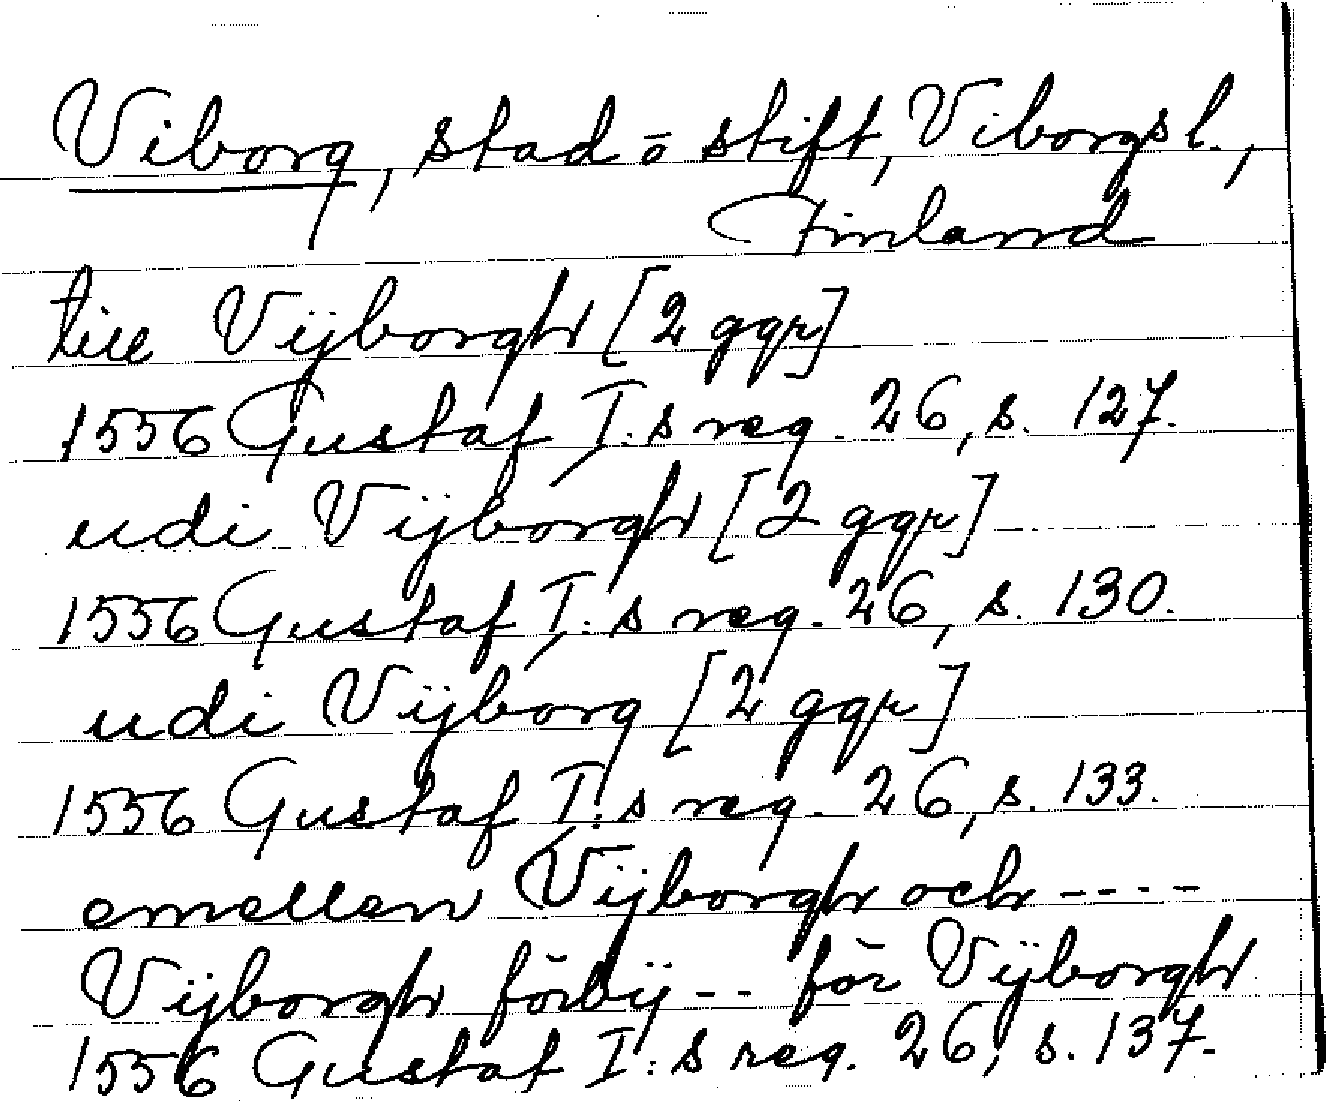 Viborg, stad o stift, Viborgs l.,
Finland
till Vijborgh [2 ggr]
1556 Gustaf I:s reg. 26, s. 127.
udi Vijborgh [2 ggr]
1556 Gustaf I:s reg. 26, s. 130.
udi Vijborg [2 ggr]
1556 Gustaf I:s reg. 26, s. 133.
emellen Vijborgh och ----
Vijborgh förbij -- för Vijborgh
1556 Gustaf I:s reg. 26, s. 137.